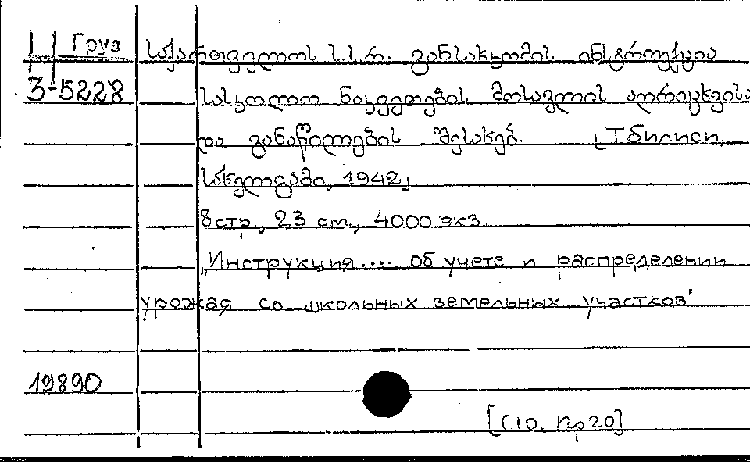 Груз საქართველოს ს.ს.რ. განსახკომის ინსტრუქცია
3-5228 სასკოლო ნაკვეთების მოსავლის აღრიცხვისა
და განაწილების შესახებ. [Тбилиси,
სახელგამი, 1942]
8 стр., 23 cm., 4000 экз.
"Инструкция.... об учете и распределении
урожая со школьных земельных участков"
19890